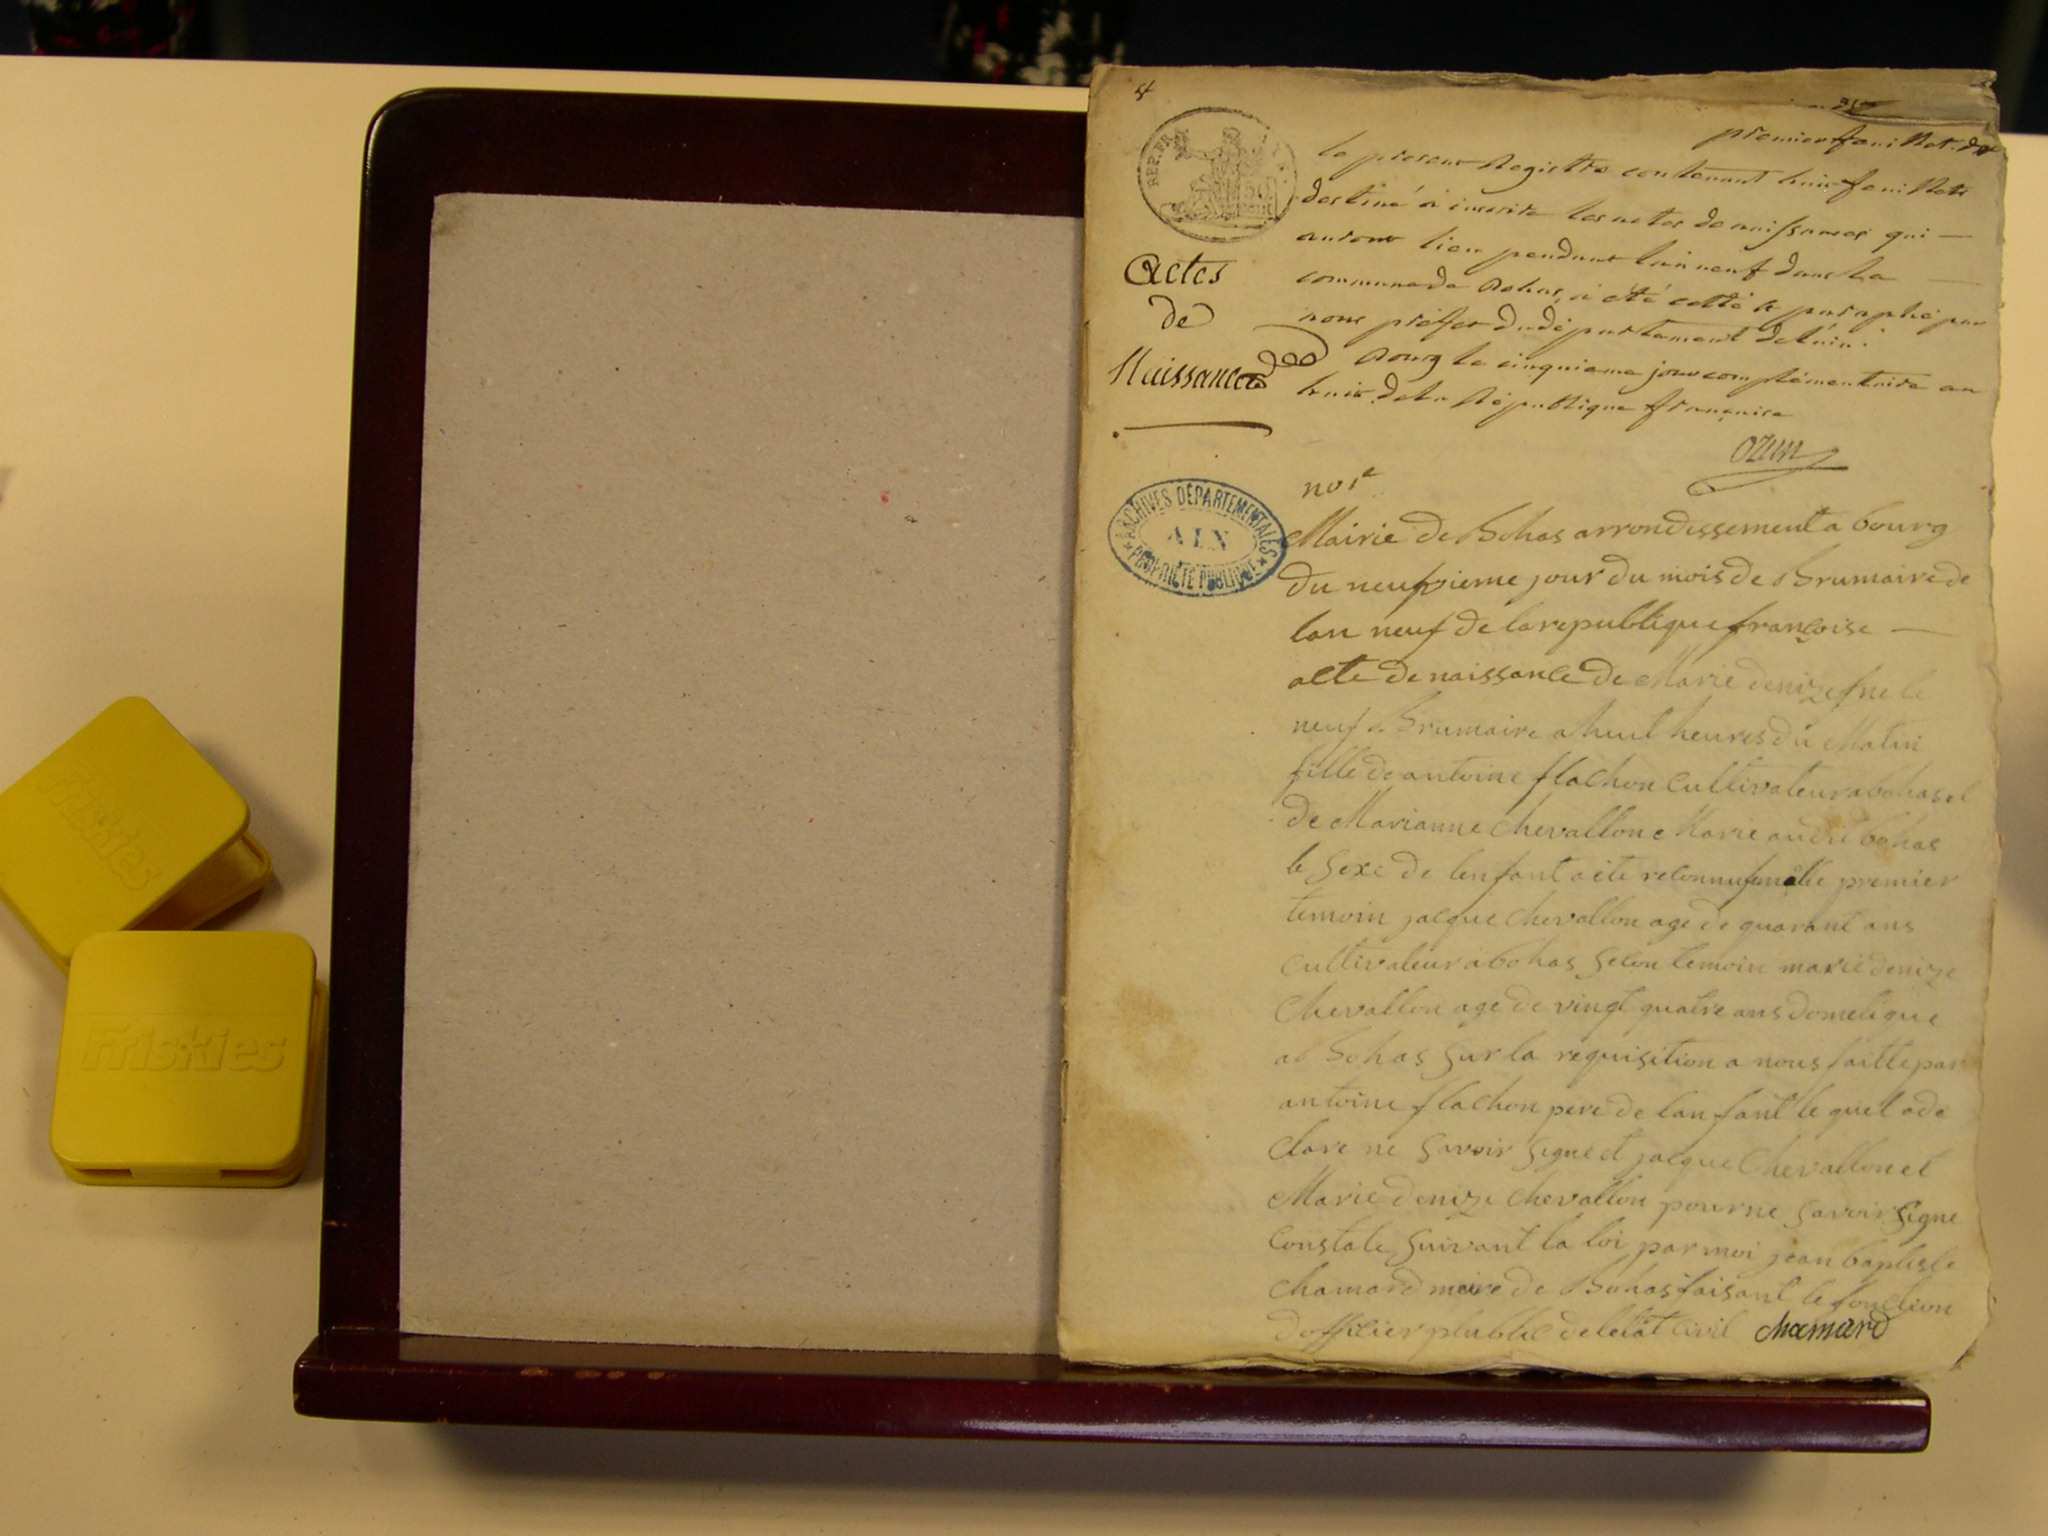 4
premier feuillet
REP. FRA
le present Registre contenant huit feuillets
destiné à inscrire les actes de naissances qui —
auront lieu pendant l'an neuf dans la
commune de Bohas, a été cotté & paraphé par
nous préfet du département de l'ain.
Bourg le cinquieme jour complémentaire an
huit de la République française
Ozun
Actes
de
Naissances
ARCHIVES DÉPARTEMENTALES
AIN
PROPRIÉTÉ PUBLIQUE
no 1er
Mairie de Bohas arrondissement a bourg
du neufvieme jour du mois de Brumaire de
lan neuf de la republique françoise —
acte de naissance de Marie denize ne le
neuf Brumaire a huit heures du Matin
fille de antoine flachon cultivateur a bohas et
de Marianne chevallon Marie audit bohas
le sexe de lenfant a ete reconnu femelle premier
temoin jacque chevallon age de quarant ans
cultivateur a bohas secon temoin marie denize
chevallon age de vingt quatre ans domestique
a Bohas sur la requisition a nous faitte par
antoine flachon pere de lanfant le quel a de
clare ne savoir signe et jacque Chevallon et
Marie denize chevallon pour ne savoir signe
Constate suivant la loi par moi jean baptiste
chamard maire de Bohas faisant le fonction
dofficier plublic de letat civil chamard
Friskies
Friskies